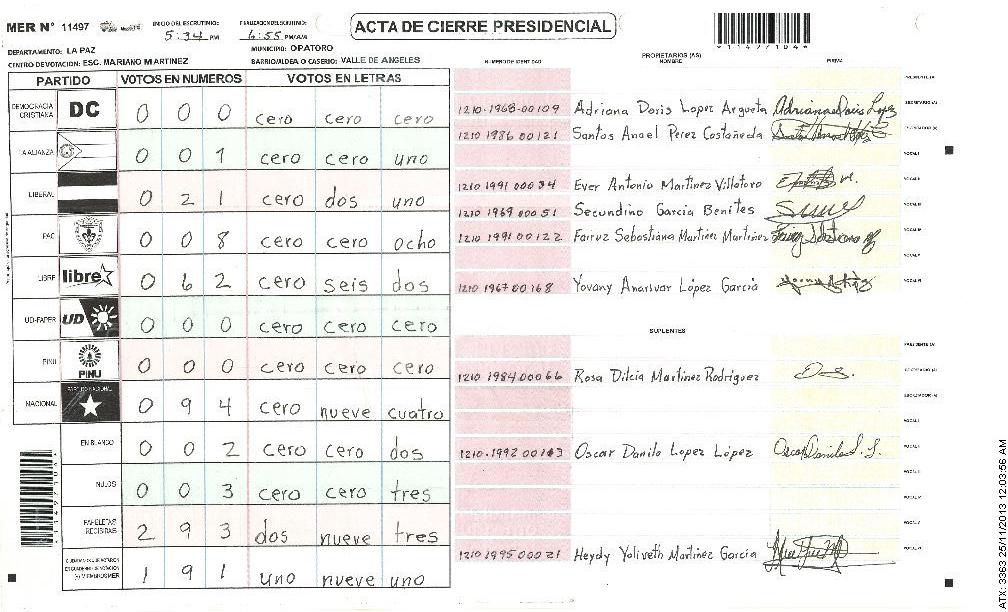 MER Nº 11497
INICIO DEL ESCRUTINIO: 5:34 PM
FINALIZACION ESCRUTINIO: 6:55 PM/AM
ACTA DE CIERRE PRESIDENCIAL
DEPARTAMENTO: LA PAZ
MUNICIPIO: OPATORO
CENTRO DE VOTACION: ESC. MARIANO MARTINEZ
BARRIO/ALDEA O CASERIO: VALLE DE ANGELES
PARTIDO VOTOS EN NUMEROS VOTOS EN LETRAS
DEMOCRACIA CRISTIANA DC 0 0 0 cero cero cero
LA ALIANZA 0 0 1 cero cero uno
LIBERAL 0 2 1 cero dos uno
PAC 0 0 8 cero cero ocho
LIBRE libre 0 6 2 cero seis dos
UD-FAPER UD 0 0 0 cero cero cero
PINU PINU 0 0 0 cero cero cero
NACIONAL PARTIDO NACIONAL 0 9 4 cero nueve cuatro
EN BLANCO 0 0 2 cero cero dos
NULOS 0 0 3 cero cero tres
PAPELETAS RECIBIDAS 2 9 3 dos nueve tres
1 9 1 uno nueve uno
NUMERO DE IDENTIDAD
PROPIETARIOS (AS)
NOMBRE
FIRMA
PRESIDENTE (A)
1210-1968-00109 Adriana Doris Lopez Argueta SECRETARIO (A)
1210 1986 00121 Santos Anael Perez Castañeda ESCRUTADOR (A)
VOCAL I
1210 1991 00034 Ever Antonio Martinez Villatoro VOCAL II
1210 1969 00051 Secundino Garcia Benites VOCAL III
1210 1991 00122 Farruz Sebastiana Martinez Martinez VOCAL IV
VOCAL V
1210 1967 00168 Yovany Anarivar López Garcia VOCAL VI
SUPLENTES
PRESIDENTE (A)
1210 1984 00066 Rosa Dilcia Martinez Rodríguez SECRETARIO (A)
ESCRUTADOR (A)
VOCAL I
1210-1992 00143 Oscar Danilo Lopez López Oscar Danilo L. L. VOCAL II
VOCAL III
VOCAL IV
VOCAL V
1210 1995 00021 Heydy Yoliveth Martinez Garcia VOCAL VI
ATX: 3363 25/11/2013 12:03:56 AM